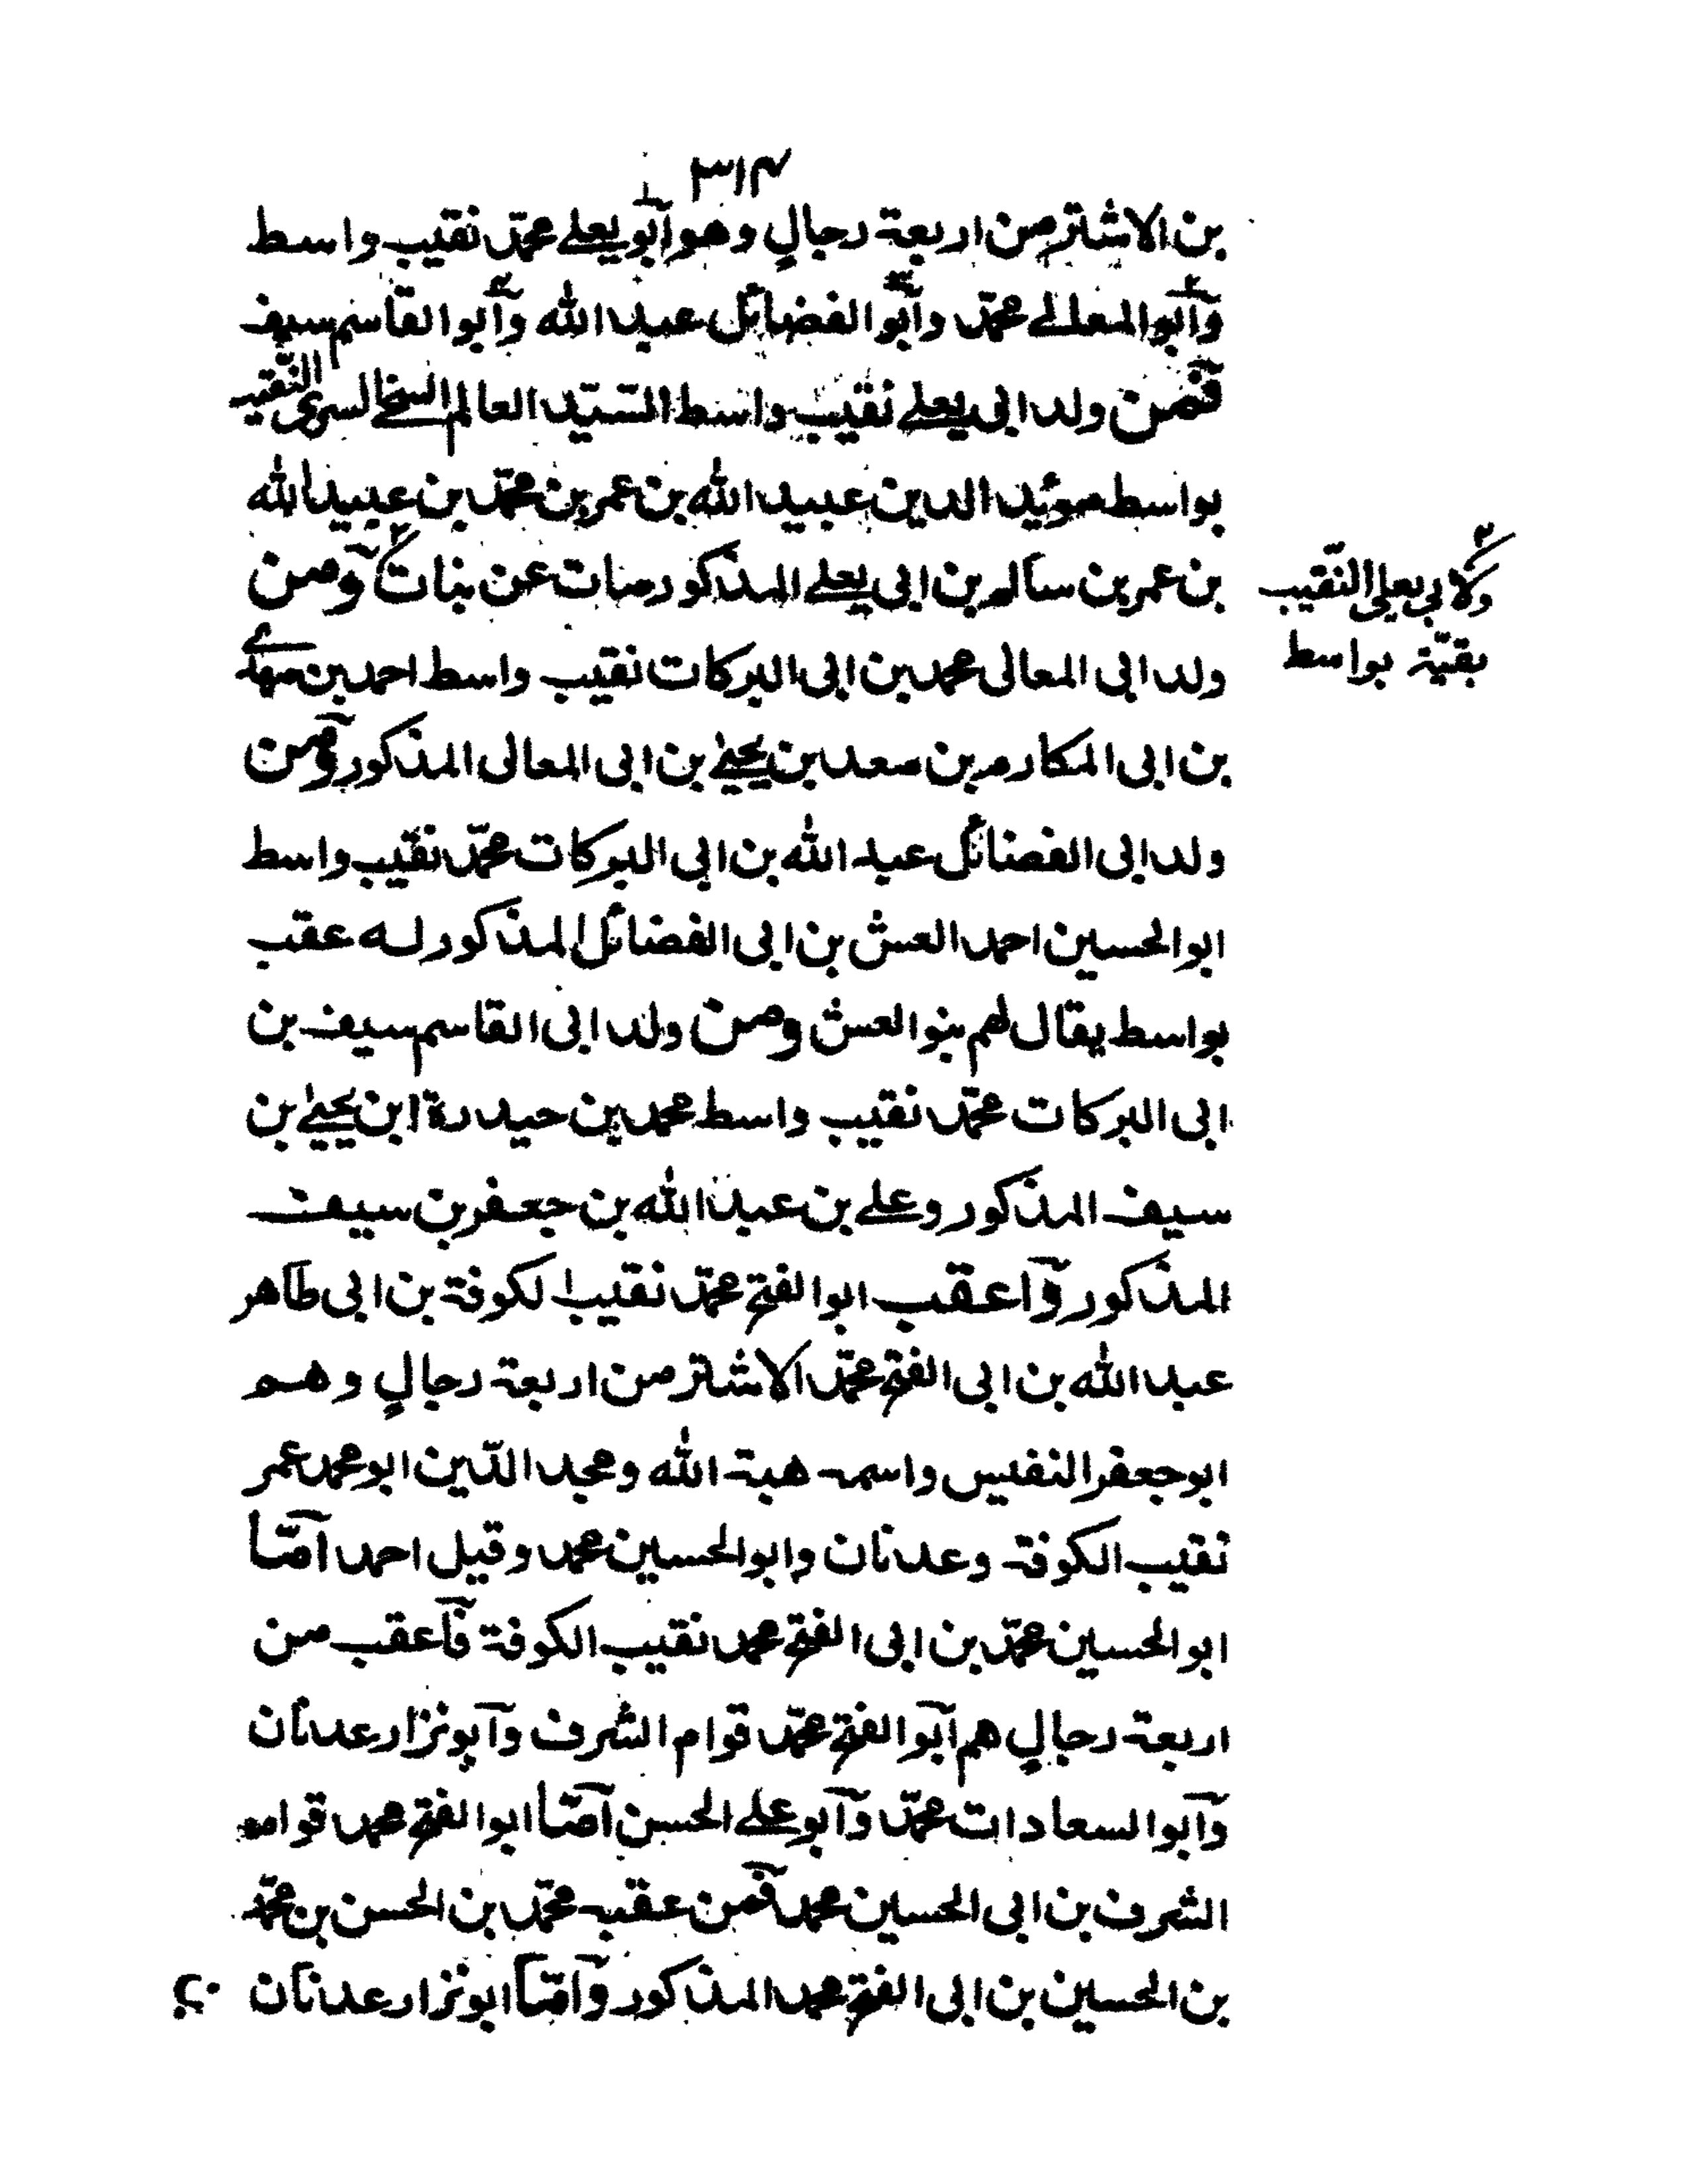 ٣١٤
بن الاشتر من اربعة رجالٍ وهو ابو يعلے محمّد نقيب واسط
وابو المعالے محمّد وابو الفضائل عبد الله وابو القاسم سيف
فمن ولد ابى يعلے نقيب واسط السّيّد العالم السخے السرى النّقيب
بواسط مويّد الدين عبيد الله بن عمر بن محمّد بن عبيد الله
بن عمر بن سالم بن ابى يعلے المذكور مات عن بنات ومن
ولابى يعلى النّقيب
بقيّة بواسط
ولد ابى المعالى محمد بن ابى البركات نقيب واسط احمد بن مهدے
بن ابى المكارم بن سعد بن يحيٰے بن ابى المعالى المذكور ومن
ولد ابى الفضائل عبد الله بن ابى البركات محمّد نقيب واسط
ابو الحسين احمد العش بن ابى الفضائل المذكور له عقب
بواسط يقال لهم بنو العش ومن ولد ابى القاسم سيف بن
ابى البركات محمّد نقيب واسط محمد بن حيدرة ابن يحيٰے بن
سيف المذكور وعلے بن عبد الله بن جعفر بن سيف
المذكور واعقب ابو الفتح محمّد نقيب الكوفة بن ابى طاهر
عبد الله بن ابى الفتح محمّد الاشتر من اربعة رجالٍ وهم
ابو جعفر النفيس واسمه هبة الله ومجد الدّين ابو محمد عمر
نقيب الكوفة وعدنان وابو الحسين محمد وقيل احمد امّا
ابو الحسين محمّد بن ابى الفتح محمد نقيب الكوفة فاعقب من
اربعة رجالٍ هم ابو الفتح محمّد قوام الشرف وابو نزار عدنان
وابو السعادات محمّد وابو علے الحسن امّا ابو الفتح محمد قوام
الشرف بن ابى الحسين محمد فمن عقبه محمّد بن الحسن بن محمّد
بن الحسين بن ابى الفتح محمد المذكور وامّا ابو نزار عدنان
بن